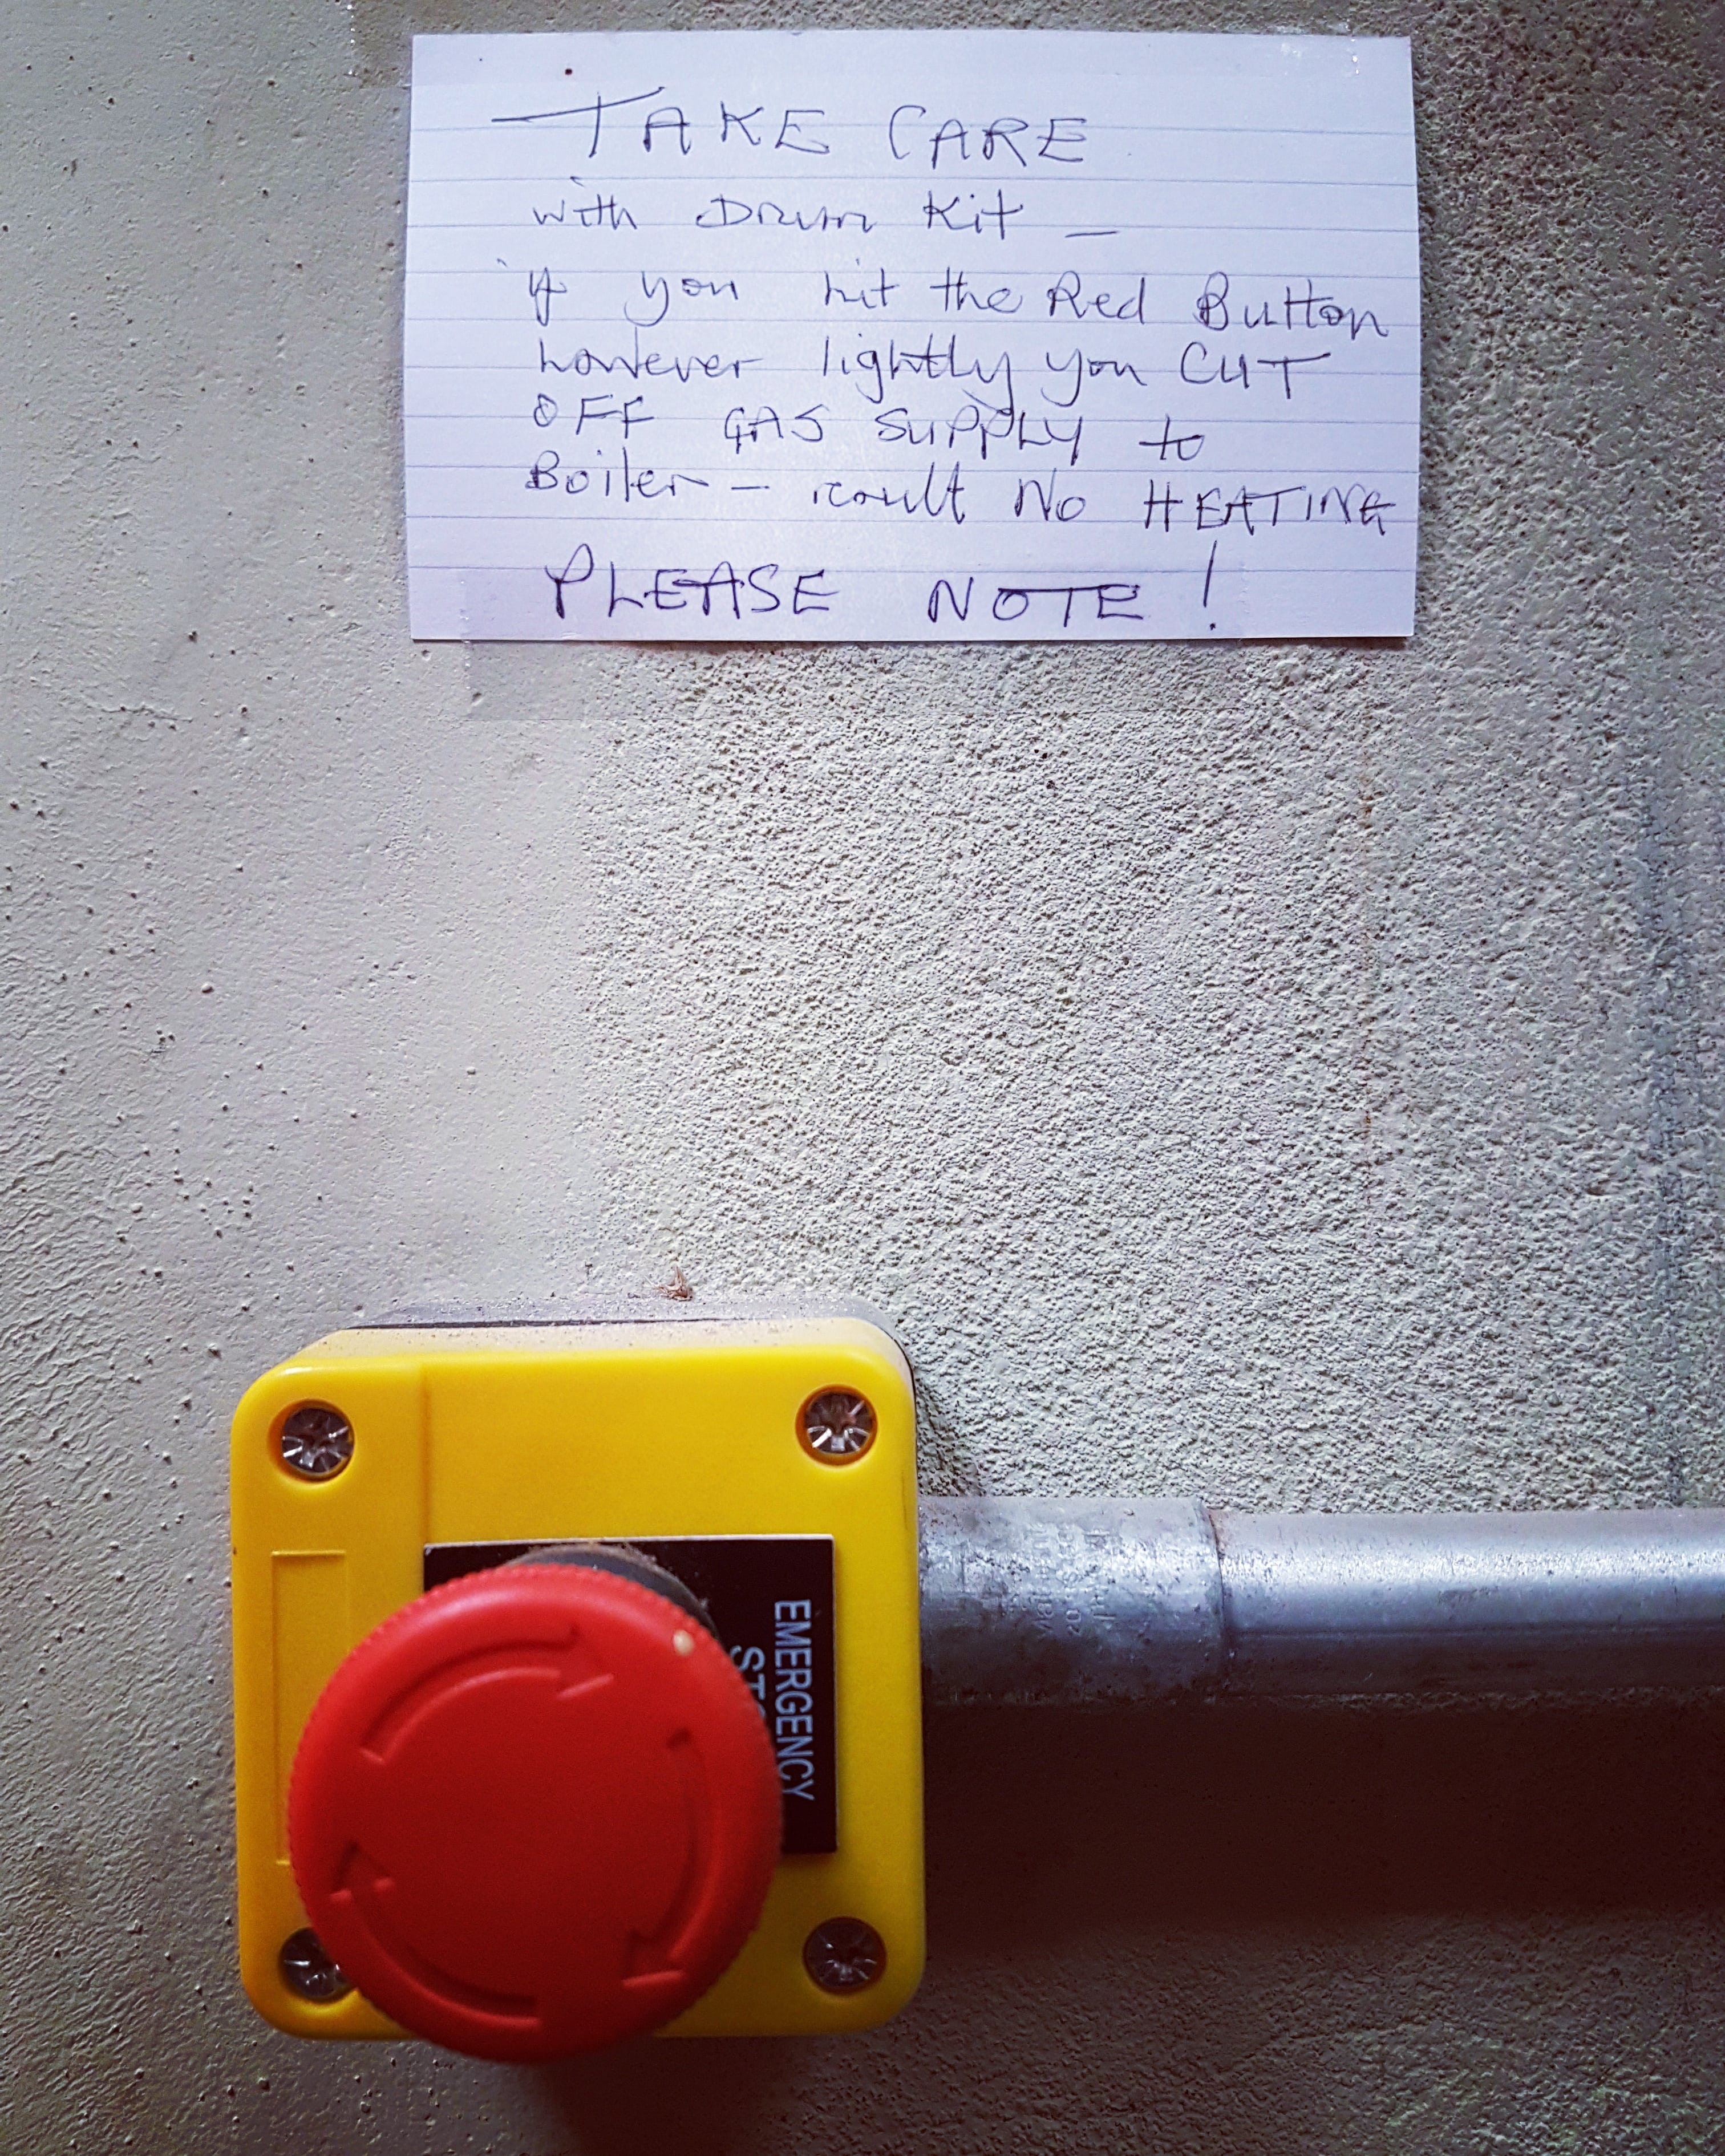 TAKE CARE
with Drum Kit –
if you hit the Red Button
however lightly you CUT
OFF GAS SUPPLY to
Boiler – result No HEATING
PLEASE NOTE!
EMERGENCY